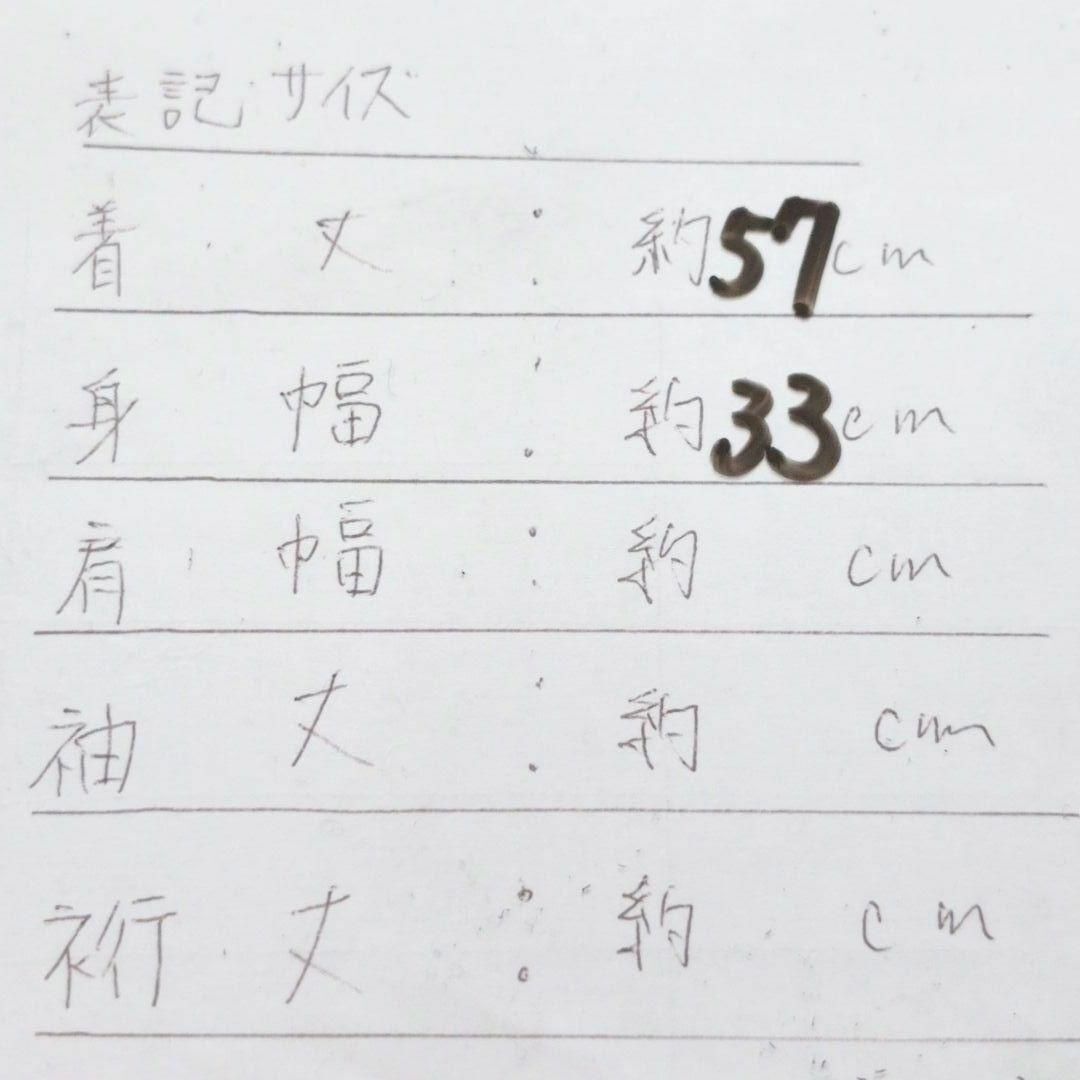 表記サイズ
着丈：約57cm
身幅：約33cm
肩幅：約 cm
袖丈：約 cm
裄丈：約 cm